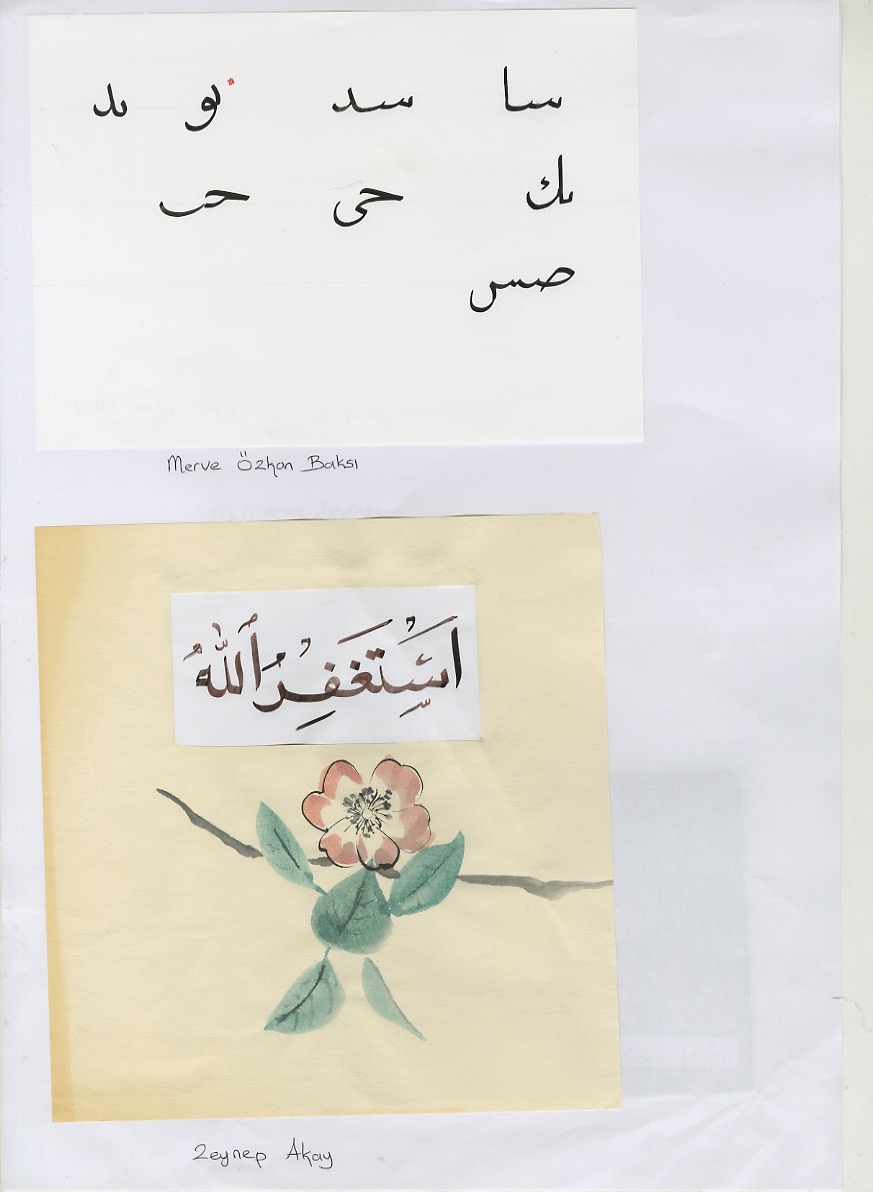 سا سد ٮو ٮد
ٮك حى حٮ
صس
Merve Özkan Baksı
اَسْتَغْفِرُ اللّٰهُ
Zeynep Akay